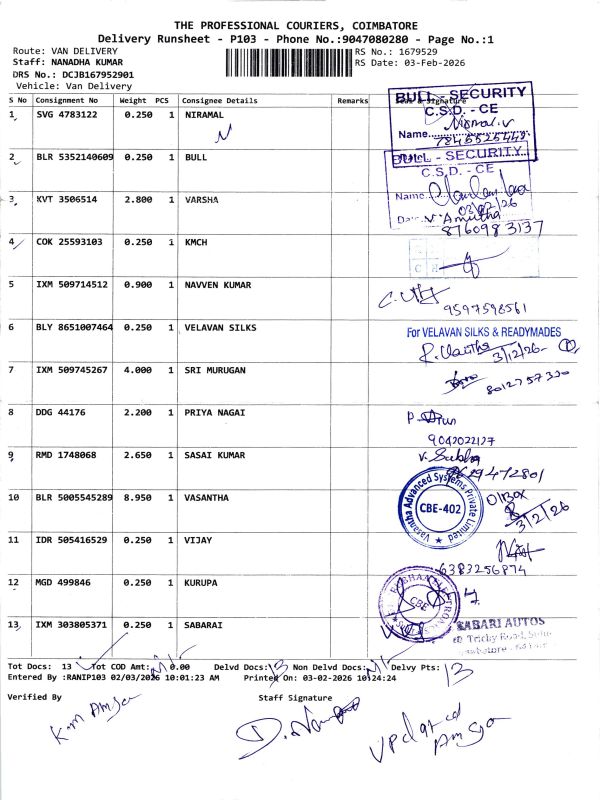 THE PROFESSIONAL COURIERS, COIMBATORE
Delivery Runsheet - P103 - Phone No.:9047080280 - Page No.:1
Route: VAN DELIVERY
RS No.: 1679529
Staff: NANADHA KUMAR
RS Date: 03-Feb-2026
DRS No.: DCJB167952901
Vehicle: Van Delivery
S No Consignment No Weight PCS Consignee Details Remarks Seal & Signature
1 SVG 4783122 0.250 1 NIRAMAL
BULL - SECURITY
C.S.D. - CE
Name Nirmal.V
2 BLR 5352140609 0.250 1 BULL
BULL - SECURITY
C.S.D. - CE
Name
03/02/26
3 KVT 3506514 2.800 1 VARSHA
Date V. Amutha
8760983137
4 COK 25593103 0.250 1 KMCH
5 IXM 509714512 0.900 1 NAVVEN KUMAR
9597598561
6 BLY 8651007464 0.250 1 VELAVAN SILKS
For VELAVAN SILKS & READYMADES
7 IXM 509745267 4.000 1 SRI MURUGAN
8012757330
8 DDG 44176 2.200 1 PRIYA NAGAI
9042022127
9 RMD 1748068 2.650 1 SASAI KUMAR
V. Subha
10 BLR 5005545289 8.950 1 VASANTHA
Vasantha Advanced Systems Private Limited
CBE-402
3/2/26
11 IDR 505416529 0.250 1 VIJAY
6383256874
12 MGD 499846 0.250 1 KURUPA
CBE
13 IXM 303805371 0.250 1 SABARAI
SABARI AUTOS
Trichy Road
Tot Docs: 13 Tot COD Amt: 0.00 Delvd Docs: 13 Non Delvd Docs: Nil Delvy Pts: 13
Entered By :RANIP103 02/03/2026 10:01:23 AM Printed On: 03-02-2026 10:24:24
Verified By Staff Signature
Updated